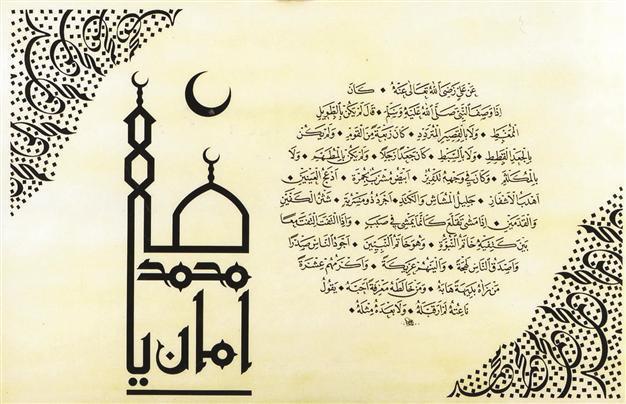 عَنْ عَلِيٍّ رَضِيَ اللهُ تَعَالَى عَنْهُ • كَانَ
إِذَا وَصَفَ النَّبِيَّ صَلَّى اللهُ عَلَيْهِ وَسَلَّمَ • قَالَ لَمْ يَكُنْ بِالطَّوِيلِ
الْمُمَّغِطِ • وَلَا بِالْقَصِيرِ الْمُتَرَدِّدِ • كَانَ رَبْعَةً مِنَ الْقَوْمِ • وَلَمْ يَكُنْ
بِالْجَعْدِ الْقَطَطِ • وَلَا بِالسَّبِطِ • كَانَ جَعْدًا رَجِلًا • وَلَمْ يَكُنْ بِالْمُطَهَّمِ • وَلَا
بِالْمُكَلْثَمِ • وَكَانَ فِي وَجْهِهِ تَدْوِيرٌ • أَبْيَضُ مُشْرَبٌ بِحُمْرَةٍ • أَدْعَجُ الْعَيْنَيْنِ
أَهْدَبُ الْأَشْفَارِ • جَلِيلُ الْمُشَاشِ وَالْكَتَدِ • أَجْرَدُ ذُو مَسْرُبَةٍ • شَثْنُ الْكَفَّيْنِ
وَالْقَدَمَيْنِ • إِذَا مَشَى تَقَلَّعَ كَأَنَّمَا يَمْشِي فِي صَبَبٍ • وَإِذَا الْتَفَتَ الْتَفَتَ مَعًا
بَيْنَ كَتِفَيْهِ خَاتَمُ النُّبُوَّةِ • وَهُوَ خَاتَمُ النَّبِيِّينَ • أَجْوَدُ النَّاسِ صَدْرًا
وَأَصْدَقُ النَّاسِ لَهْجَةً • وَأَلْيَنُهُمْ عَرِيكَةً • وَأَكْرَمُهُمْ عِشْرَةً
مَنْ رَآهُ بَدِيهَةً هَابَهُ • وَمَنْ خَالَطَهُ مَعْرِفَةً أَحَبَّهُ • يَقُولُ
نَاعِتُهُ لَمْ أَرَ قَبْلَهُ • وَلَا بَعْدَهُ مِثْلَهُ •
محمد
امان يا